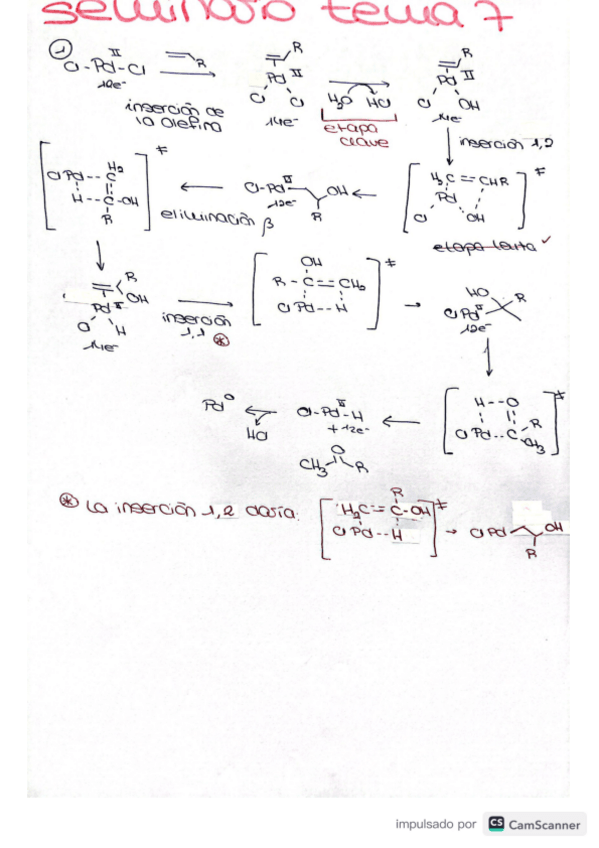 seminario tema 7
1
II
Cl-Pd-Cl
12e-
R
inserción de
la olefina
R
Pd II
Cl Cl
14e-
H2O HCl
etapa
clave
R
Pd II
Cl OH
14e-
inserción 1,2
H2C = CHR ≠
Pd
Cl OH
etapa lenta ✓
II
Cl-Pd OH
12e- R
eliminación β
H2 ≠
Cl Pd -- C
H -- C -OH
R
R
OH
Pd II
Cl H
14e-
inserción
1,1 *
OH ≠
R - C == CH2
Cl Pd -- H
HO R
Cl Pd II
12e-
H -- O ≠
Cl Pd -- C R
CH3
II
Cl-Pd-H
+ 12e-
O
CH3 R
HCl
Pd0
* La inserción 1,2 daría:
R
H2C = C - OH ≠
Cl Pd -- H
Cl Pd OH
R
impulsado por CS CamScanner